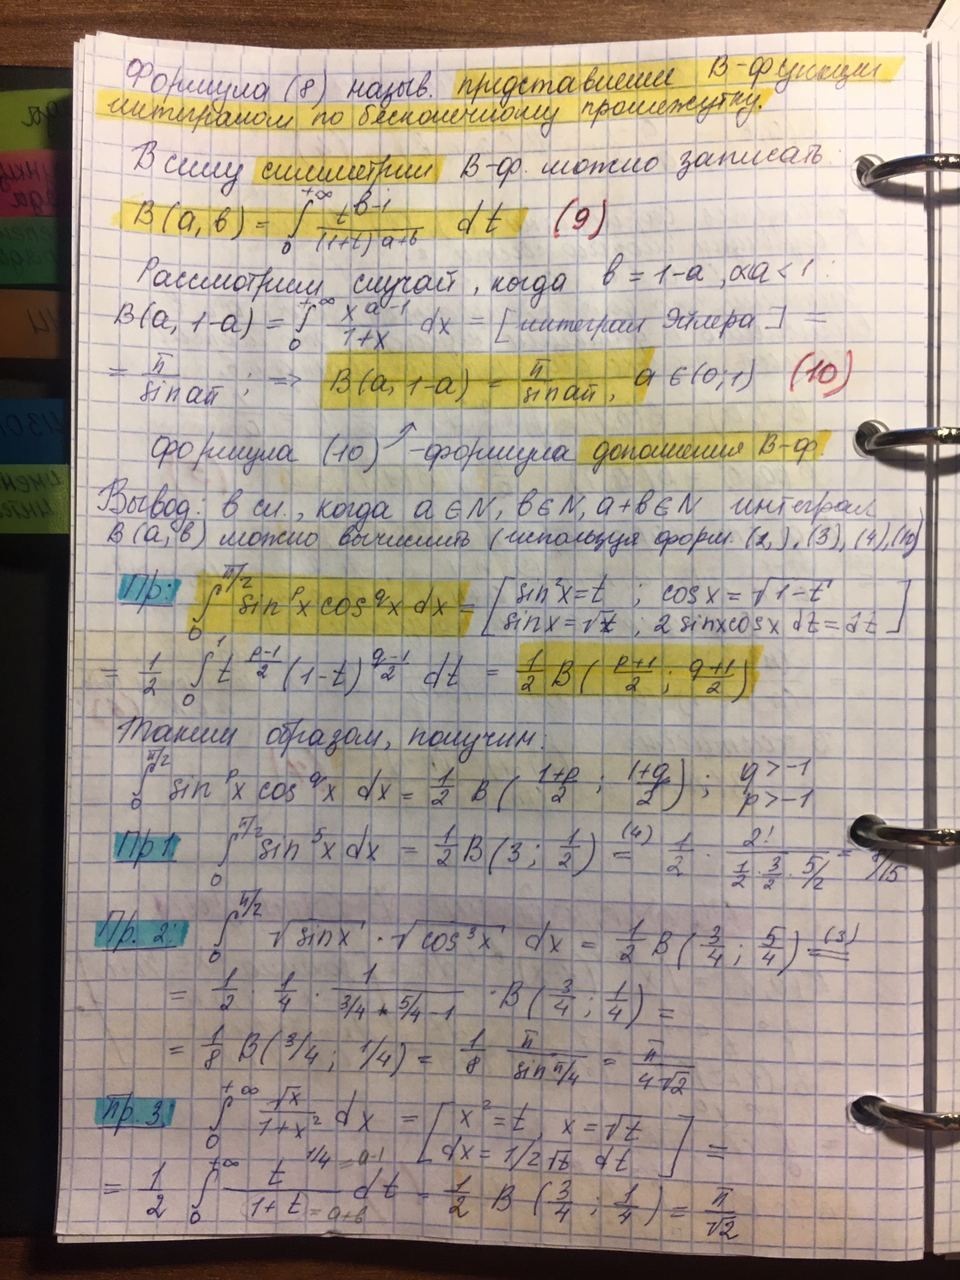 Формула (8) назыв. представление В-функции
интегралом по бесконечному промежутку.
В силу симметрии В-ф. можно записать:
B(a, в) = ∫₀^{+∞} t^{в-1}/(1+t)^{a+в} dt (9)
Рассмотрим случай, когда в = 1-a, 0<a<1:
B(a, 1-a) = ∫₀^{+∞} x^{a-1}/(1+x) dx = [интеграл Эйлера] =
= π/sin aπ ; => B(a, 1-a) = π/sin aπ, a ∈ (0;1) (10)
формула (10) ↗ -формула дополнения В-ф.
Вывод: в сл., когда a ∈ N, в ∈ N, a+в ∈ N интеграл
B(a, в) можно вычислить (используя форм. (2), (3), (4), (10)
Пр: ∫₀^{π/2} sin^p x cos^q x dx = [sin²x = t ; cosx = √1-t
sinx = √t ; 2 sinxcosx dt = dt]
= 1/2 ∫₀^1 t^{(p-1)/2} (1-t)^{(q-1)/2} dt = 1/2 B((p+1)/2 ; (q+1)/2)
Таким образом, получим:
∫₀^{π/2} sin^p x cos^q x dx = 1/2 B((1+p)/2 ; (1+q)/2) ; q > -1
p > -1
Пр1 ∫₀^{π/2} sin⁵x dx = 1/2 B(3 ; 1/2) =^{(4)} 1/2 · 2!/(1/2 · 3/2 · 5/2) = 8/15
Пр. 2: ∫₀^{π/2} √sinx · √cos³x dx = 1/2 B(3/4 ; 5/4) =^{(3)}
= 1/2 · 1/4 · 1/(3/4 + 5/4 - 1) · B(3/4 ; 1/4) =
= 1/8 B(3/4 ; 1/4) = 1/8 π/(sin π/4) = π/(4√2)
Пр. 3. ∫₀^{+∞} √x/(1+x²) dx = [x² = t, x = √t
dx = 1/2√t dt] =
= 1/2 ∫₀^{+∞} t^{1/4 = a-1}/(1+t)^{= a+в} dt = 1/2 B(3/4 ; 1/4) = π/√2